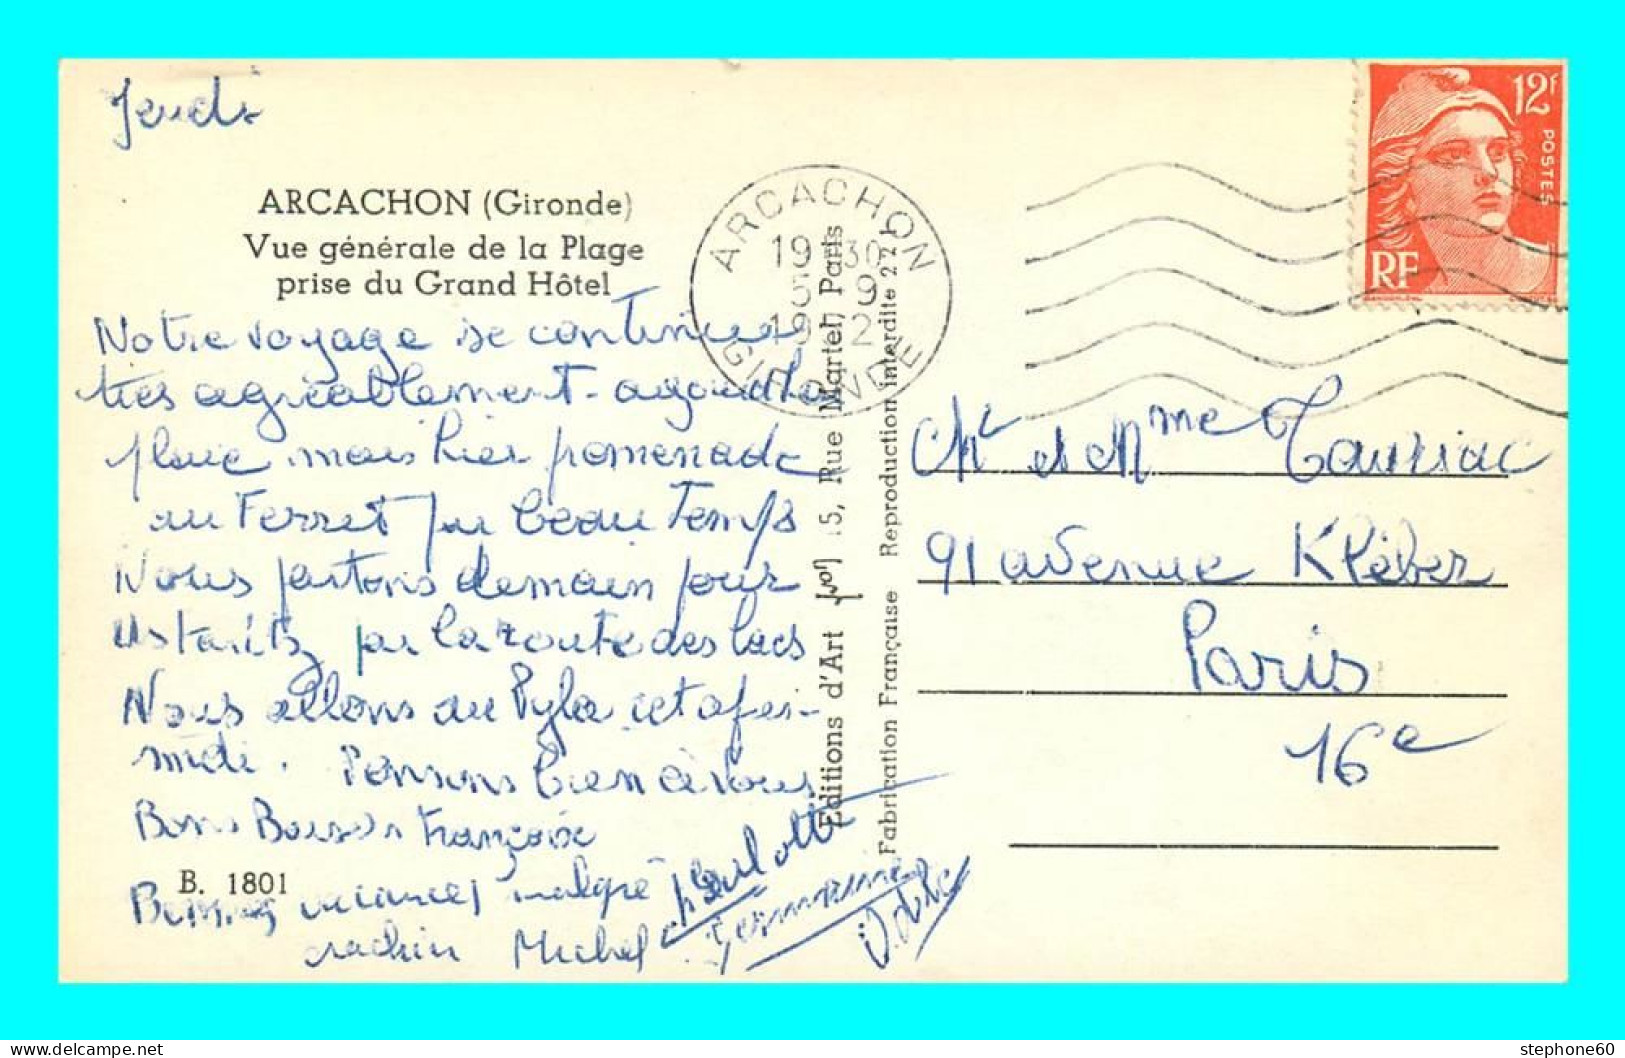 Jeudi
ARCACHON (Gironde)
Vue générale de la Plage
prise du Grand Hôtel
Notre voyage se continue
très agréablement - aujourdhui
pluie mais hier promenade
au Ferret par beau Temps
Nous partons demain pour
Ustaritz par la route des lacs
Nous allons au Pyla cet après-
midi. Pensons bien à vous
Bons Baisers Françoise
B. 1801
Bonnes vacances malgré
Michel
Germaine
ARCACHON
19 30
9
GIRONDE
Editions d'Art yvon 15, Rue Martel, Paris
Fabrication Française Reproduction interdite
12F
POSTES
RF
Mr et Mme Tauriac
91 avenue Kléber
Paris
16e
stephone60